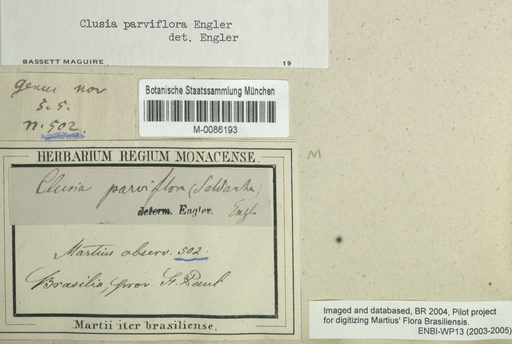 Clusia parviflora Engler
det. Engler
BASSETT MAGUIRE
19
genus nov
S. S.
n. 502.
Botanische Staatssammlung München
M-0086193
HERBARIUM REGIUM MONACENSE.
Clusia parviflora (Saldanha)
determ. Engler. Engl.
Martius observ. 502
Brasilia, prov. St. Paul
Martii iter brasiliense.
M
Imaged and databased, BR 2004, Pilot project
for digitizing Martius' Flora Brasiliensis.
ENBI-WP13 (2003-2005)